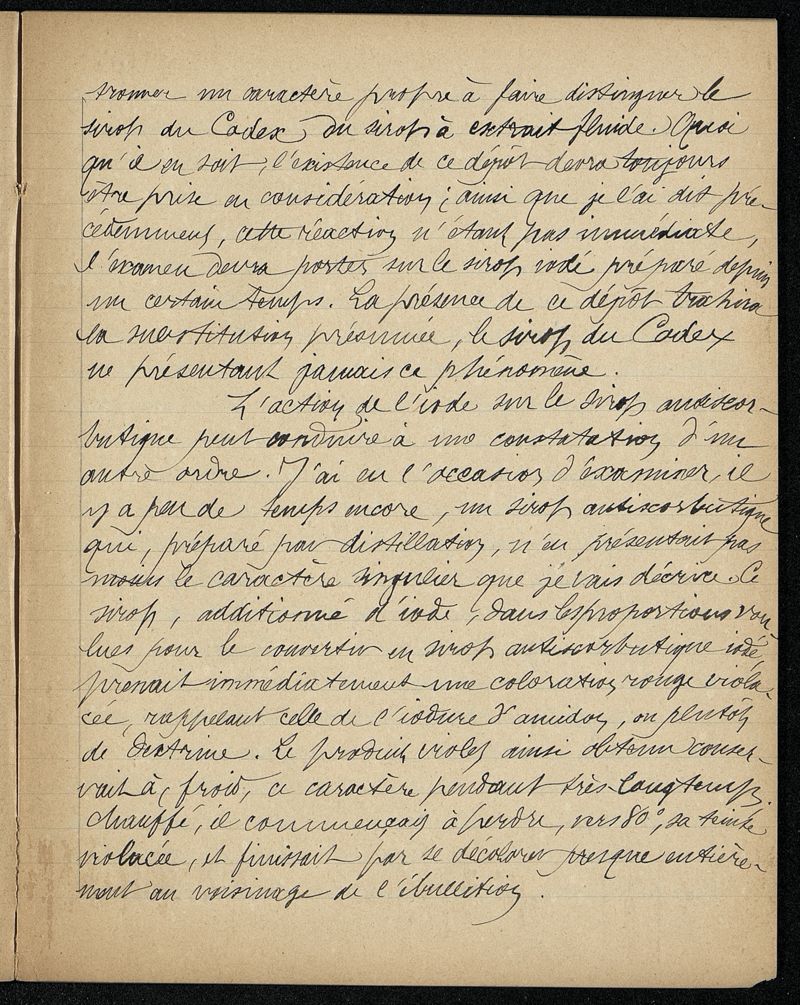 trouver un caractère propre à faire distinguer le
sirop du Codex, du sirop à extrait fluide. Quoi
qu'il en soit, l'existence de ce dépôt devra toujours
être prise en considération ; ainsi que je l'ai dit pré-
cédemment, cette réaction n'étant pas immédiate,
l'examen devra porter sur le sirop iodé préparé depuis
un certain temps. La présence de ce dépôt trahira
la substitution présumée, le sirop du Codex
ne présentant jamais ce phénomène.
L'action de l'iode sur le sirop antiscor-
butique peut conduire à une constatation d'un
autre ordre. J'ai eu l'occasion d'examiner, il
y a peu de temps encore, un sirop antiscorbutique
qui, préparé par distillation, n'en présentait pas
moins le caractère singulier que je vais décrire. Ce
sirop, additionné d'iode, dans les proportions vou-
lues pour le convertir en sirop antiscorbutique iodé,
prenait immédiatement une coloration rouge viola-
cée, rappelant celle de l'iodure d'amidon, ou plutôt
de dextrine. Le produit violet ainsi obtenu conser-
vait à froid, ce caractère pendant très longtemps.
Chauffé, il commençait à perdre, vers 80°, sa teinte
violacée, et finissait par se décolorer presque entière-
ment au voisinage de l'ébullition.